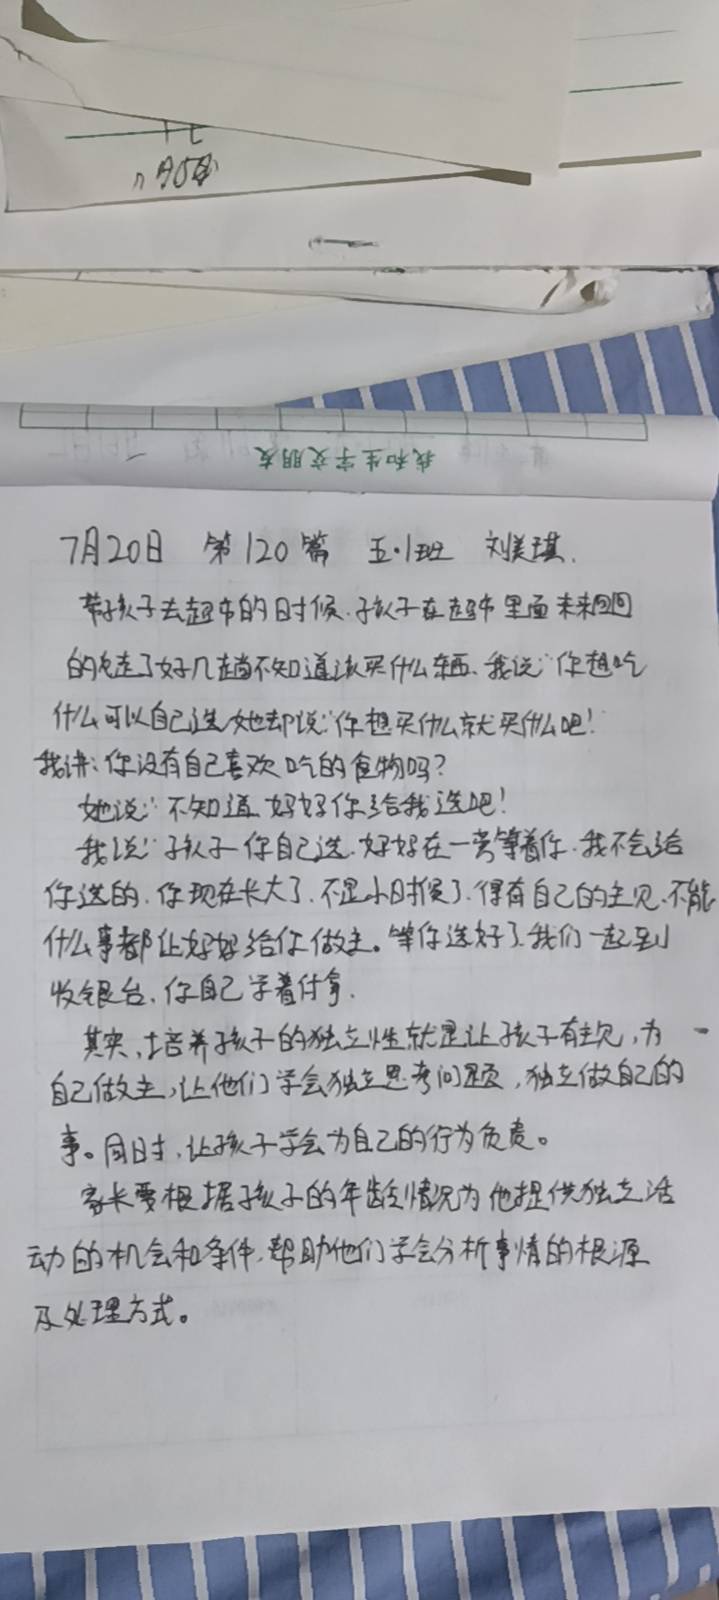 我和生字交朋友
7月20日 第120篇 五·1班 刘美琪.
带孩子去超市的时候.孩子在超市里面来来回回
的走了好几趟不知道该买什么东西、我说:你想吃
什么可以自己选她却说:你想买什么就买什么吧!
我讲:你没有自己喜欢吃的食物吗?
她说:不知道妈妈你给我选吧!
我说:孩子你自己选.妈妈在一旁等着你.我不会给
你选的.你现在长大了.不是小时候了.得有自己的主见.不能
什么事都让妈妈给你做主。等你选好了我们一起到
收银台.你自己学着付拿.
其实,培养孩子的独立性就是让孩子有主见,为
自己做主,让他们学会独立思考问题,独立做自己的
事。同时,让孩子学会为自己的行为负责。
家长要根据孩子的年龄情况为他提供独立活
动的机会和条件.帮助他们学会分析事情的根源
及处理方式。